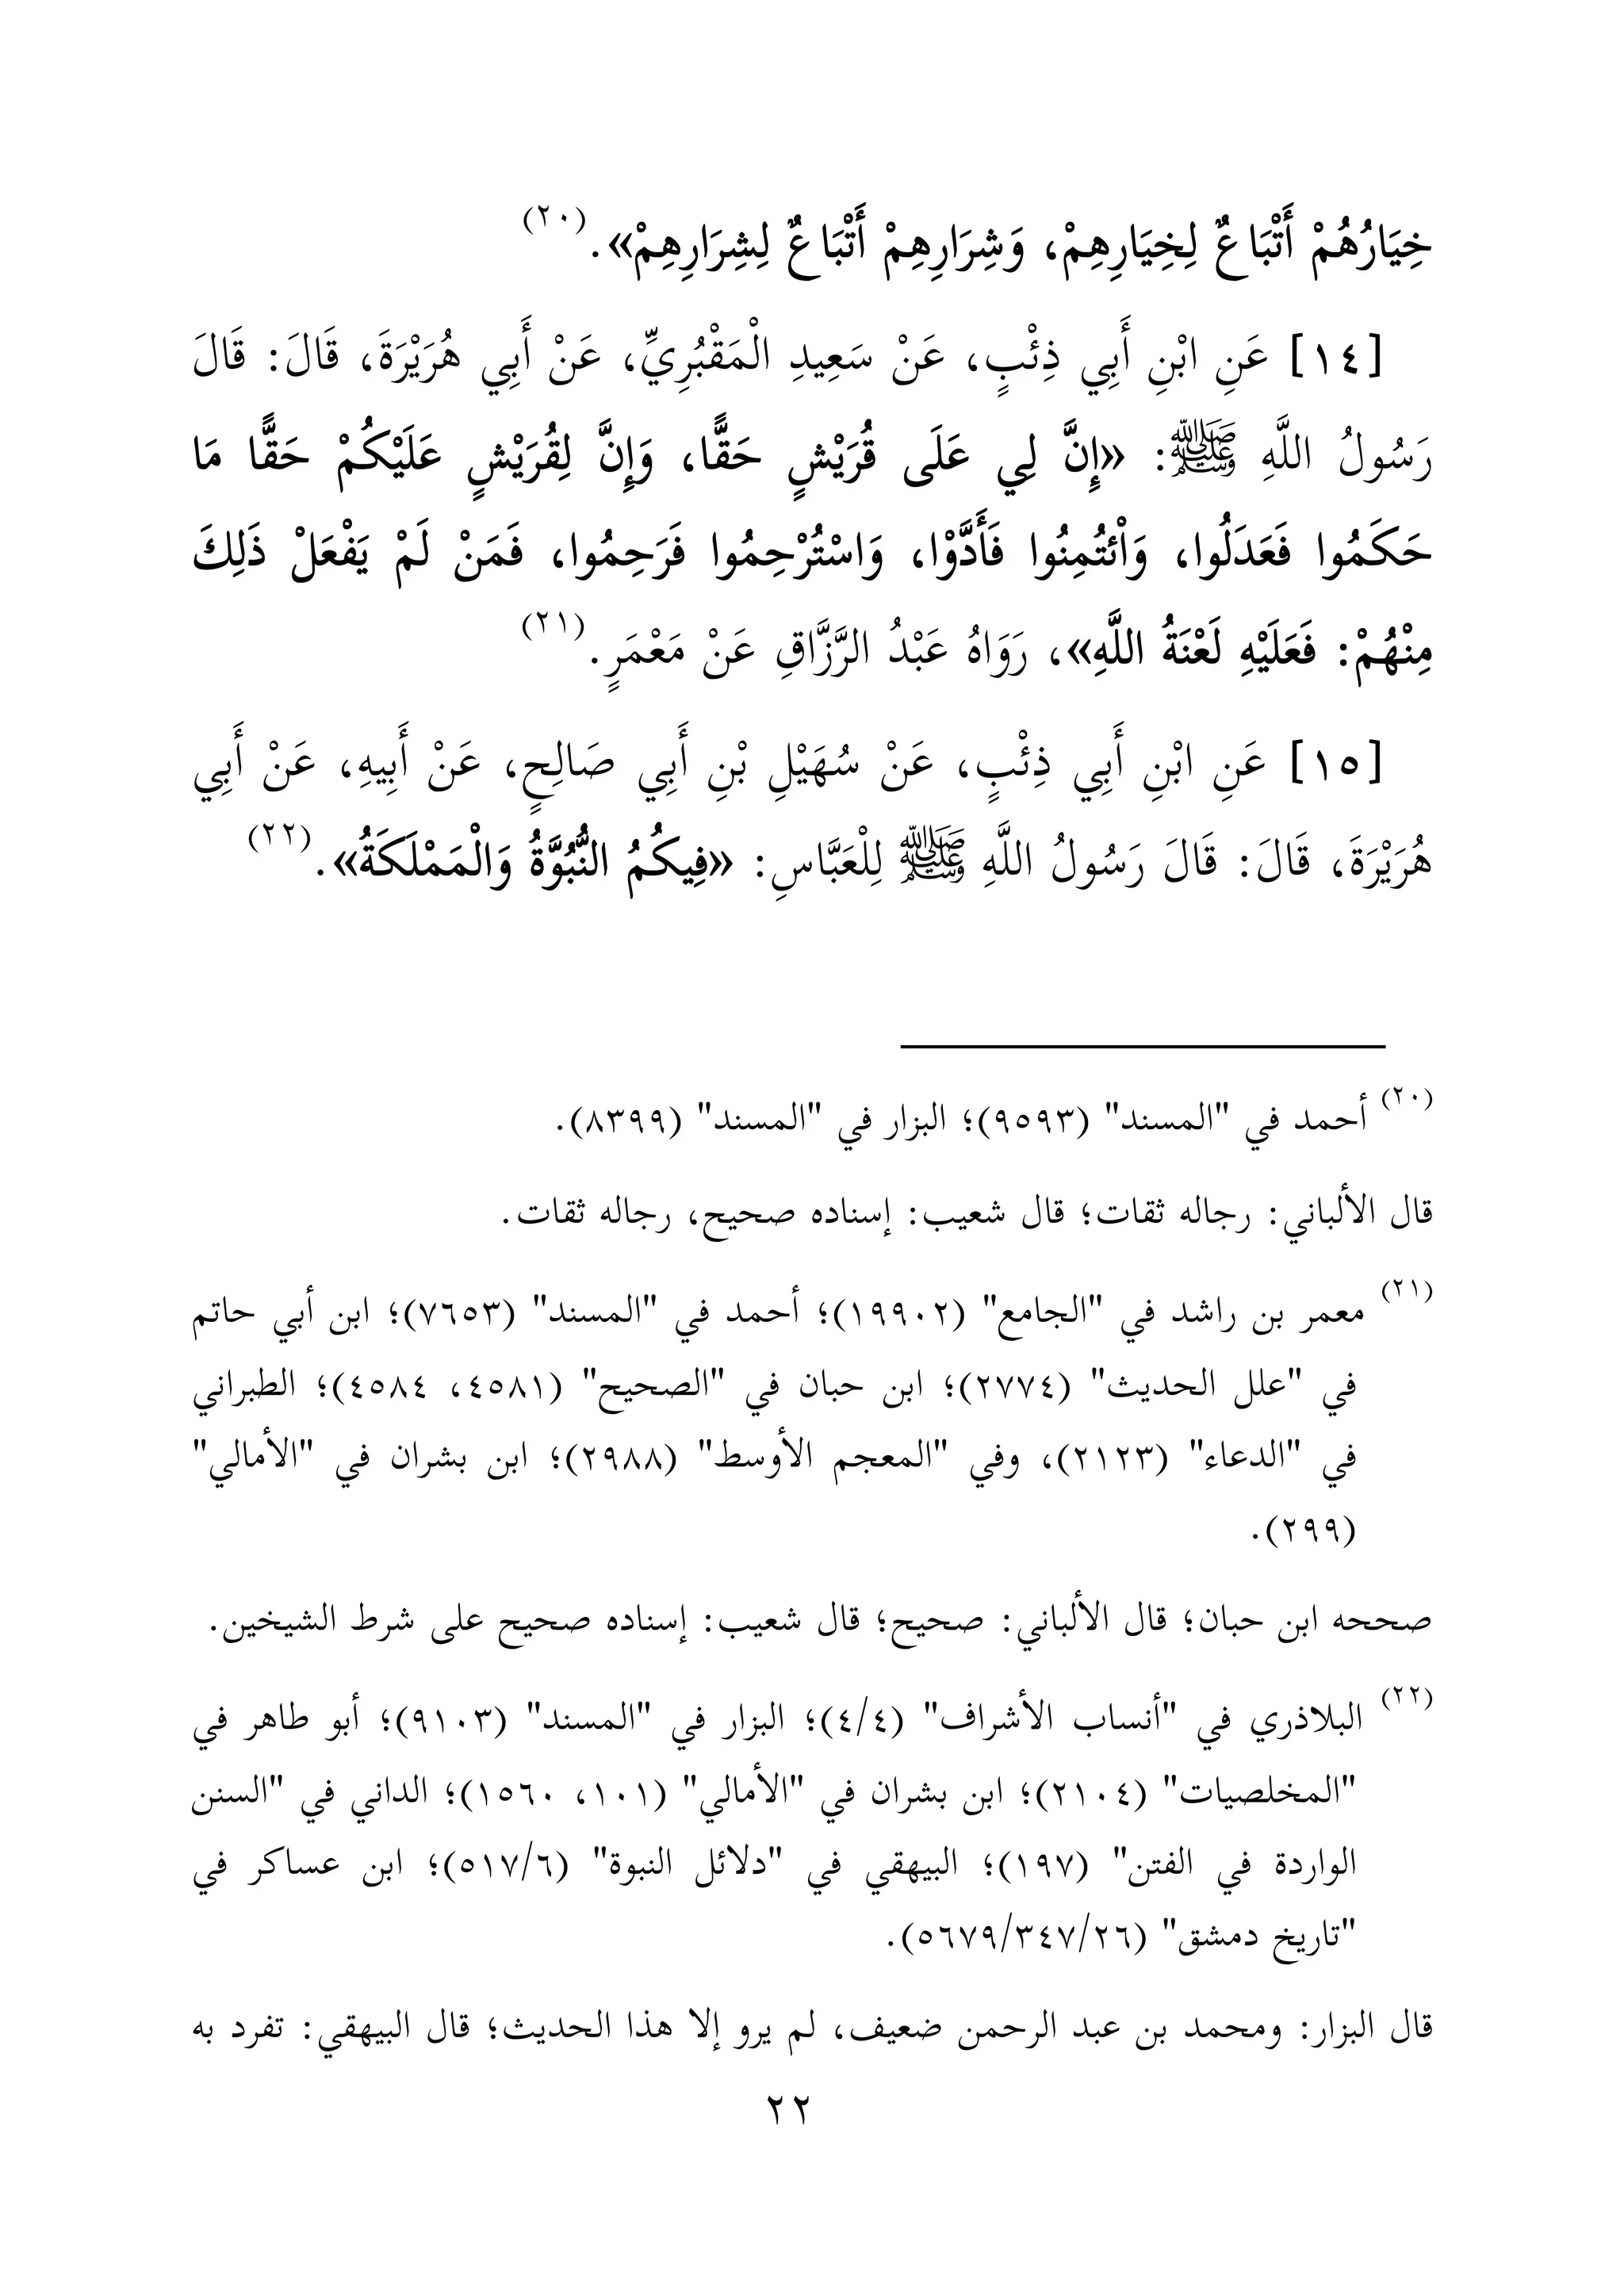 خِيَارُهُمْ أَتْبَاعٌ لِخِيَارِهِمْ، وَشِرَارِهِمْ أَتْبَاعٌ لِشِرَارِهِمْ».(٢٠)
[١٤] عَنِ ابْنِ أَبِي ذِئْبٍ، عَنْ سَعِيدِ الْمَقْبُرِيِّ، عَنْ أَبِي هُرَيْرَةَ، قَالَ: قَالَ
رَسُولُ اللَّهِ ﷺ: «إِنَّ لِي عَلَى قُرَيْشٍ حَقًّا، وَإِنَّ لِقُرَيْشٍ عَلَيْكُمْ حَقًّا مَا
حَكَمُوا فَعَدَلُوا، وَاْئتُمِنُوا فَأَدَّوْا، وَاسْتُرْحِمُوا فَرَحِمُوا، فَمَنْ لَمْ يَفْعَلْ ذَلِكَ
مِنْهُمْ: فَعَلَيْهِ لَعْنَةُ اللَّهِ»، رَوَاهُ عَبْدُ الرَّزَّاقِ عَنْ مَعْمَرٍ.(٢١)
[١٥] عَنِ ابْنِ أَبِي ذِئْبٍ، عَنْ سُهَيْلِ بْنِ أَبِي صَالِحٍ، عَنْ أَبِيهِ، عَنْ أَبِي
هُرَيْرَةَ، قَالَ: قَالَ رَسُولُ اللَّهِ ﷺ لِلْعَبَّاسِ: «فِيكُمُ النُّبُوَّةُ وَالْمَمْلَكَةُ».(٢٢)
(٢٠) أحمد في "المسند" (٩٥٩٣)؛ البزار في "المسند" (٨٣٩٩).
قال الألباني: رجاله ثقات؛ قال شعيب: إسناده صحيح، رجاله ثقات.
(٢١) معمر بن راشد في "الجامع" (١٩٩٠٢)؛ أحمد في "المسند" (٧٦٥٣)؛ ابن أبي حاتم
في "علل الحديث" (٢٧٧٤)؛ ابن حبان في "الصحيح" (٤٥٨١، ٤٥٨٤)؛ الطبراني
في "الدعاء" (٢١٢٣)، وفي "المعجم الأوسط" (٢٩٨٨)؛ ابن بشران في "الأمالي"
(٢٩٩).
صححه ابن حبان؛ قال الألباني: صحيح؛ قال شعيب: إسناده صحيح على شرط الشيخين.
(٢٢) البلاذري في "أنساب الأشراف" (٤/٤)؛ البزار في "المسند" (٩١٠٣)؛ أبو طاهر في
"المخلصيات" (٢١٠٤)؛ ابن بشران في "الأمالي" (١٠١، ١٥٦٠)؛ الداني في "السنن
الواردة في الفتن" (١٩٧)؛ البيهقي في "دلائل النبوة" (٥١٧/٦)؛ ابن عساكر في
"تاريخ دمشق" (٥٦٧٩/٣٤٧/٢٦).
قال البزار: ومحمد بن عبد الرحمن ضعيف، لم يرو إلا هذا الحديث؛ قال البيهقي: تفرد به
٢٢